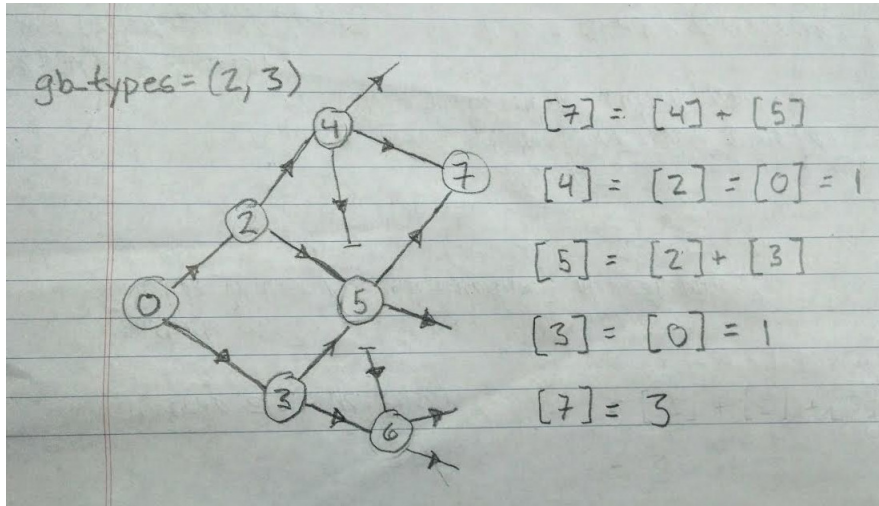 gb_types = (2, 3)
4
7
2
0
5
3
6
[7] = [4] + [5]
[4] = [2] = [0] = 1
[5] = [2] + [3]
[3] = [0] = 1
[7] = 3